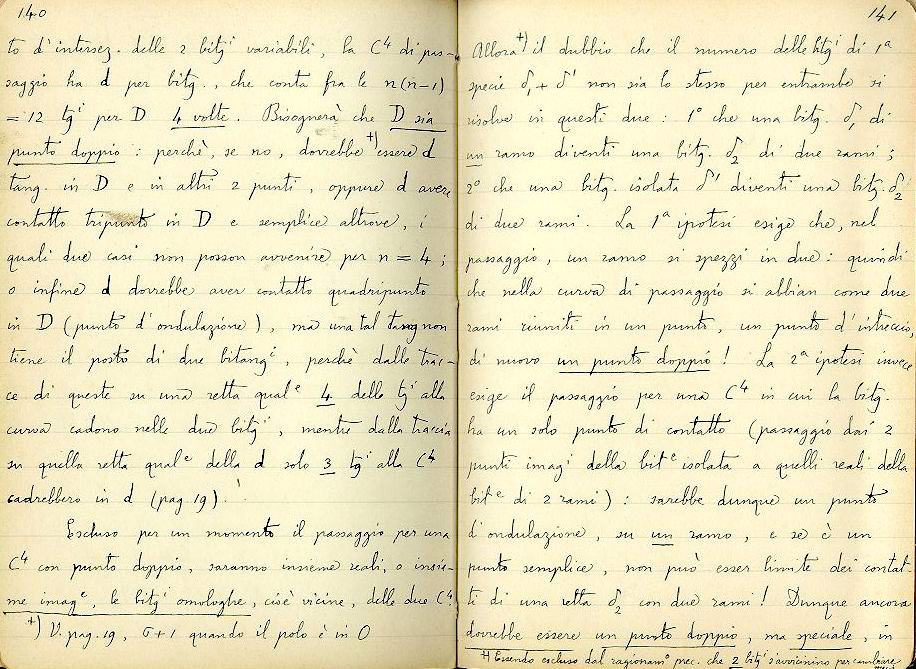 140
to d'intersez. delle 2 bitgⁱ variabili, la C⁴ di pas-
saggio ha d per bitg., che conta fra le n(n-1)
= 12 tgⁱ per D 4 volte. Bisognerà che D sia
punto doppio : perchè, se no, dovrebbe +) essere d
tang. in D e in altri 2 punti, oppure d avere
contatto tripunto in D e semplice altrove, i
quali due casi non posson avvenire per n = 4 ;
o infine d dovrebbe aver contatto quadripunto
in D (punto d'ondulazione), ma una tal tang non
tiene il posto di due bitangⁱ, perchè dalle trac-
ce di queste su una retta qualᵉ 4 delle tgⁱ alla
curva cadono nelle due bitgⁱ, mentre dalla traccia
su quella retta qualᵉ della d solo 3 tgⁱ alla C⁴
cadrebbero in d (pag. 19).
Escluso per un momento il passaggio per una
C⁴ con punto doppio, saranno insieme reali, o insie-
me imagᵉ, le bitgⁱ omologhe, cioè vicine, delle due C⁴.
+) V. pag. 19, σ+1 quando il polo è in O
141
Allora +) il dubbio che il numero delle bitgⁱ di 1ᵃ
specie δ₁ + δ' non sia lo stesso per entrambe si
risolve in questi due : 1º che una bitg. δ₁ di
un ramo diventi una bitg. δ₂ di due rami ;
2º che una bitg. isolata δ' diventi una bitg. δ₂
di due rami. La 1ᵃ ipotesi esige che, nel
passaggio, un ramo si spezzi in due : quindi
che nella curva di passaggio si abbian come due
rami riuniti in un punto, un punto d'intreccio,
di nuovo un punto doppio ! La 2ᵃ ipotesi invece
esige il passaggio per una C⁴ in cui la bitg.
ha un solo punto di contatto (passaggio dai 2
punti imagⁱ della bitᵉ isolata a quelli reali della
bitᵉ di 2 rami) : sarebbe dunque un punto
d'ondulazione, su un ramo, e se è un
punto semplice, non può esser limite dei contat-
ti di una retta δ₂ con due rami ! Dunque ancora
dovrebbe essere un punto doppio, ma speciale, in
+) Essendo escluso dal ragionamº prec. che 2 bitgⁱ s'avvicinino per cambiare